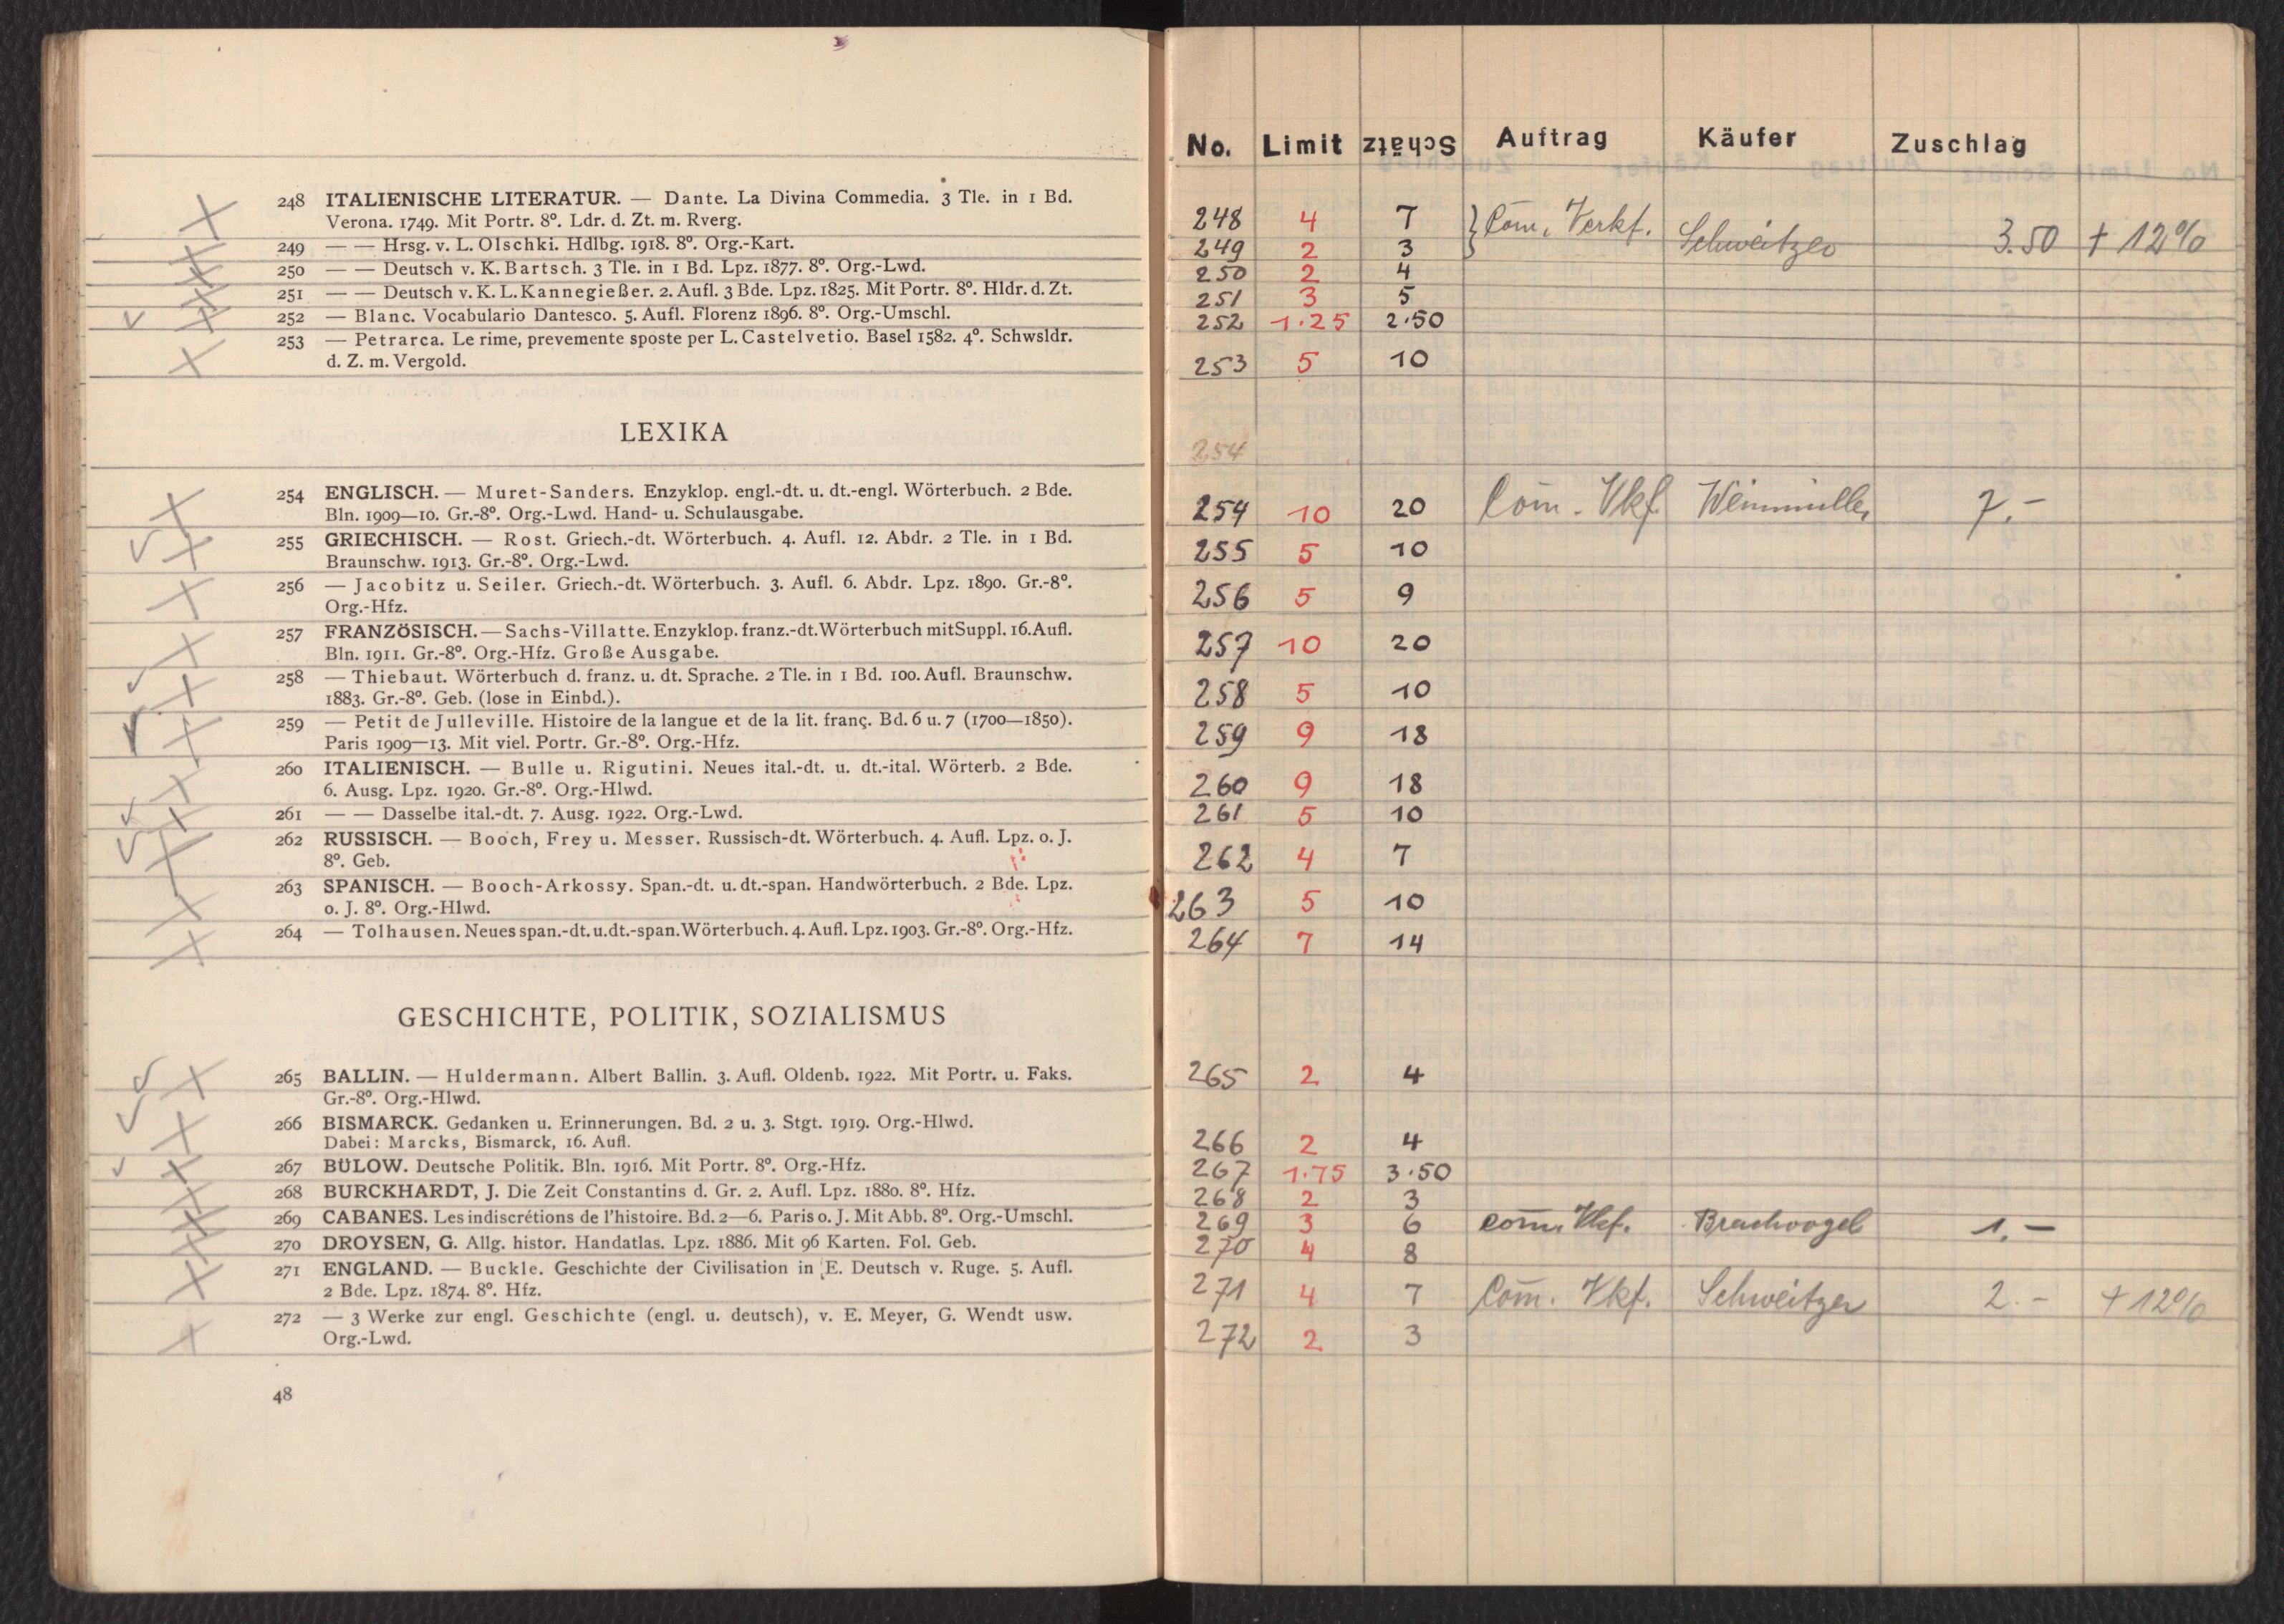 248 ITALIENISCHE LITERATUR. — Dante. La Divina Commedia. 3 Tle. in 1 Bd.
Verona. 1749. Mit Portr. 8º. Ldr. d. Zt. m. Rverg.
249 — — Hrsg. v. L. Olschki. Hdlbg. 1918. 8º. Org.-Kart.
250 — — Deutsch v. K. Bartsch. 3 Tle. in 1 Bd. Lpz. 1877. 8º. Org.-Lwd.
251 — — Deutsch v. K. L. Kannegießer. 2. Aufl. 3 Bde. Lpz. 1825. Mit Portr. 8º. Hldr. d. Zt.
252 — Blanc. Vocabulario Dantesco. 5. Aufl. Florenz 1896. 8º. Org.-Umschl.
253 — Petrarca. Le rime, prevemente sposte per L. Castelvetio. Basel 1582. 4º. Schwsldr.
d. Z. m. Vergold.
LEXIKA
254 ENGLISCH. — Muret-Sanders. Enzyklop. engl.-dt. u. dt.-engl. Wörterbuch. 2 Bde.
Bln. 1909—10. Gr.-8º. Org.-Lwd. Hand- u. Schulausgabe.
255 GRIECHISCH. — Rost. Griech.-dt. Wörterbuch. 4. Aufl. 12. Abdr. 2 Tle. in 1 Bd.
Braunschw. 1913. Gr.-8º. Org.-Lwd.
256 — Jacobitz u. Seiler. Griech.-dt. Wörterbuch. 3. Aufl. 6. Abdr. Lpz. 1890. Gr.-8º.
Org.-Hfz.
257 FRANZÖSISCH. — Sachs-Villatte. Enzyklop. franz.-dt. Wörterbuch mit Suppl. 16. Aufl.
Bln. 1911. Gr.-8º. Org.-Hfz. Große Ausgabe.
258 — Thiebaut. Wörterbuch d. franz. u. dt. Sprache. 2 Tle. in 1 Bd. 100. Aufl. Braunschw.
1883. Gr.-8º. Geb. (lose in Einbd.).
259 — Petit de Julleville. Histoire de la langue et de la lit. franç. Bd. 6 u. 7 (1700—1850).
Paris 1909—13. Mit viel. Portr. Gr.-8º. Org.-Hfz.
260 ITALIENISCH. — Bulle u. Rigutini. Neues ital.-dt. u. dt.-ital. Wörterb. 2 Bde.
6. Ausg. Lpz. 1920. Gr.-8º. Org.-Hlwd.
261 — — Dasselbe ital.-dt. 7. Ausg. 1922. Org.-Lwd.
262 RUSSISCH. — Booch, Frey u. Messer. Russisch-dt. Wörterbuch. 4. Aufl. Lpz. o. J.
8º. Geb.
263 SPANISCH. — Booch-Arkossy. Span.-dt. u. dt.-span. Handwörterbuch. 2 Bde. Lpz.
o. J. 8º. Org.-Hlwd.
264 — Tolhausen. Neues span.-dt. u. dt.-span. Wörterbuch. 4. Aufl. Lpz. 1903. Gr.-8º. Org.-Hfz.
GESCHICHTE, POLITIK, SOZIALISMUS
265 BALLIN. — Huldermann. Albert Ballin. 3. Aufl. Oldenb. 1922. Mit Portr. u. Faks.
Gr.-8º. Org.-Hlwd.
266 BISMARCK. Gedanken u. Erinnerungen. Bd. 2 u. 3. Stgt. 1919. Org.-Hlwd.
Dabei: Marcks, Bismarck, 16. Aufl.
267 BÜLOW. Deutsche Politik. Bln. 1916. Mit Portr. 8º. Org.-Hfz.
268 BURCKHARDT, J. Die Zeit Constantins d. Gr. 2. Aufl. Lpz. 1880. 8º. Hfz.
269 CABANES. Les indiscrétions de l'histoire. Bd. 2—6. Paris o. J. Mit Abb. 8º. Org.-Umschl.
270 DROYSEN, G. Allg. histor. Handatlas. Lpz. 1886. Mit 96 Karten. Fol. Geb.
271 ENGLAND. — Buckle. Geschichte der Civilisation in E. Deutsch v. Ruge. 5. Aufl.
2 Bde. Lpz. 1874. 8º. Hfz.
272 — 3 Werke zur engl. Geschichte (engl. u. deutsch), v. E. Meyer, G. Wendt usw.
Org.-Lwd.
48
No. Limit Schätz Auftrag Käufer Zuschlag
248 4 7 } Com. Verkf. Schweitzer 3.50 + 12%
249 2 3
250 2 4
251 3 5
252 1.25 2.50
253 5 10
254
254 10 20 Com. Vkf. Weinmüller 7.-
255 5 10
256 5 9
257 10 20
258 5 10
259 9 18
260 9 18
261 5 10
262 4 7
263 5 10
264 7 14
265 2 4
266 2 4
267 1.75 3.50
268 2 3
269 3 6 Com. Vkf. Brachvogel 1.-
270 4 8
271 4 7 Com. Vkf. Schweitzer 2.- + 12%
272 2 3